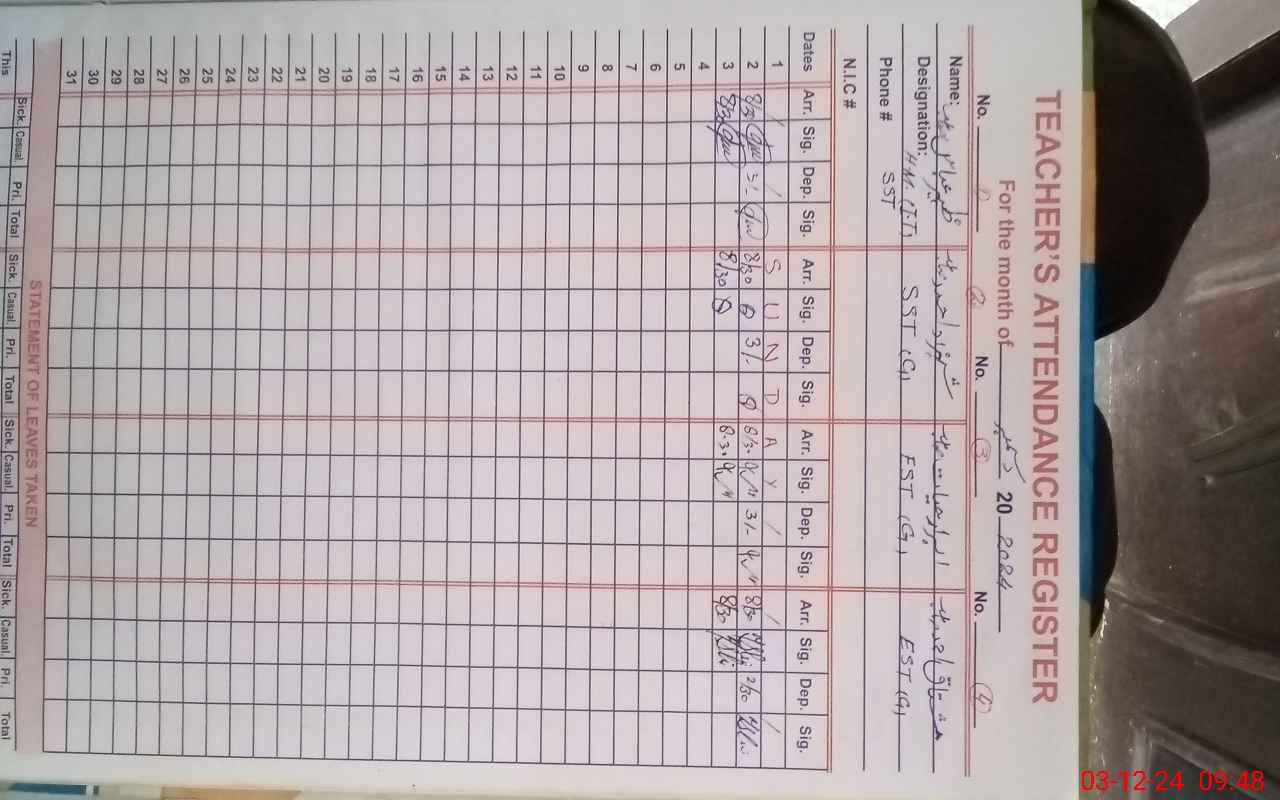 TEACHER'S ATTENDANCE REGISTER
For the month of دسمبر 20 2024
No. 1 No. 2 No. 3 No. 4
Name:
Designation: HM (I.T) SST (G) EST (G) EST (G)
Phone # SST
N.I.C #
Dates Arr. Sig. Dep. Sig. Arr. Sig. Dep. Sig. Arr. Sig. Dep. Sig. Arr. Sig. Dep. Sig.
1 / / S U N D A Y / / /
2 8/30 3/- 8/30 3/- 8/30 3/- 8/30 2/30
3 8/30 8/30 8.30 8/30
4
5
6
7
8
9
10
11
12
13
14
15
16
17
18
19
20
21
22
23
24
25
26
27
28
29
30
31
STATEMENT OF LEAVES TAKEN
Sick. Casual. Pri. Total Sick. Casual. Pri. Total Sick. Casual. Pri. Total Sick. Casual. Pri. Total
This
03-12-24 09:48